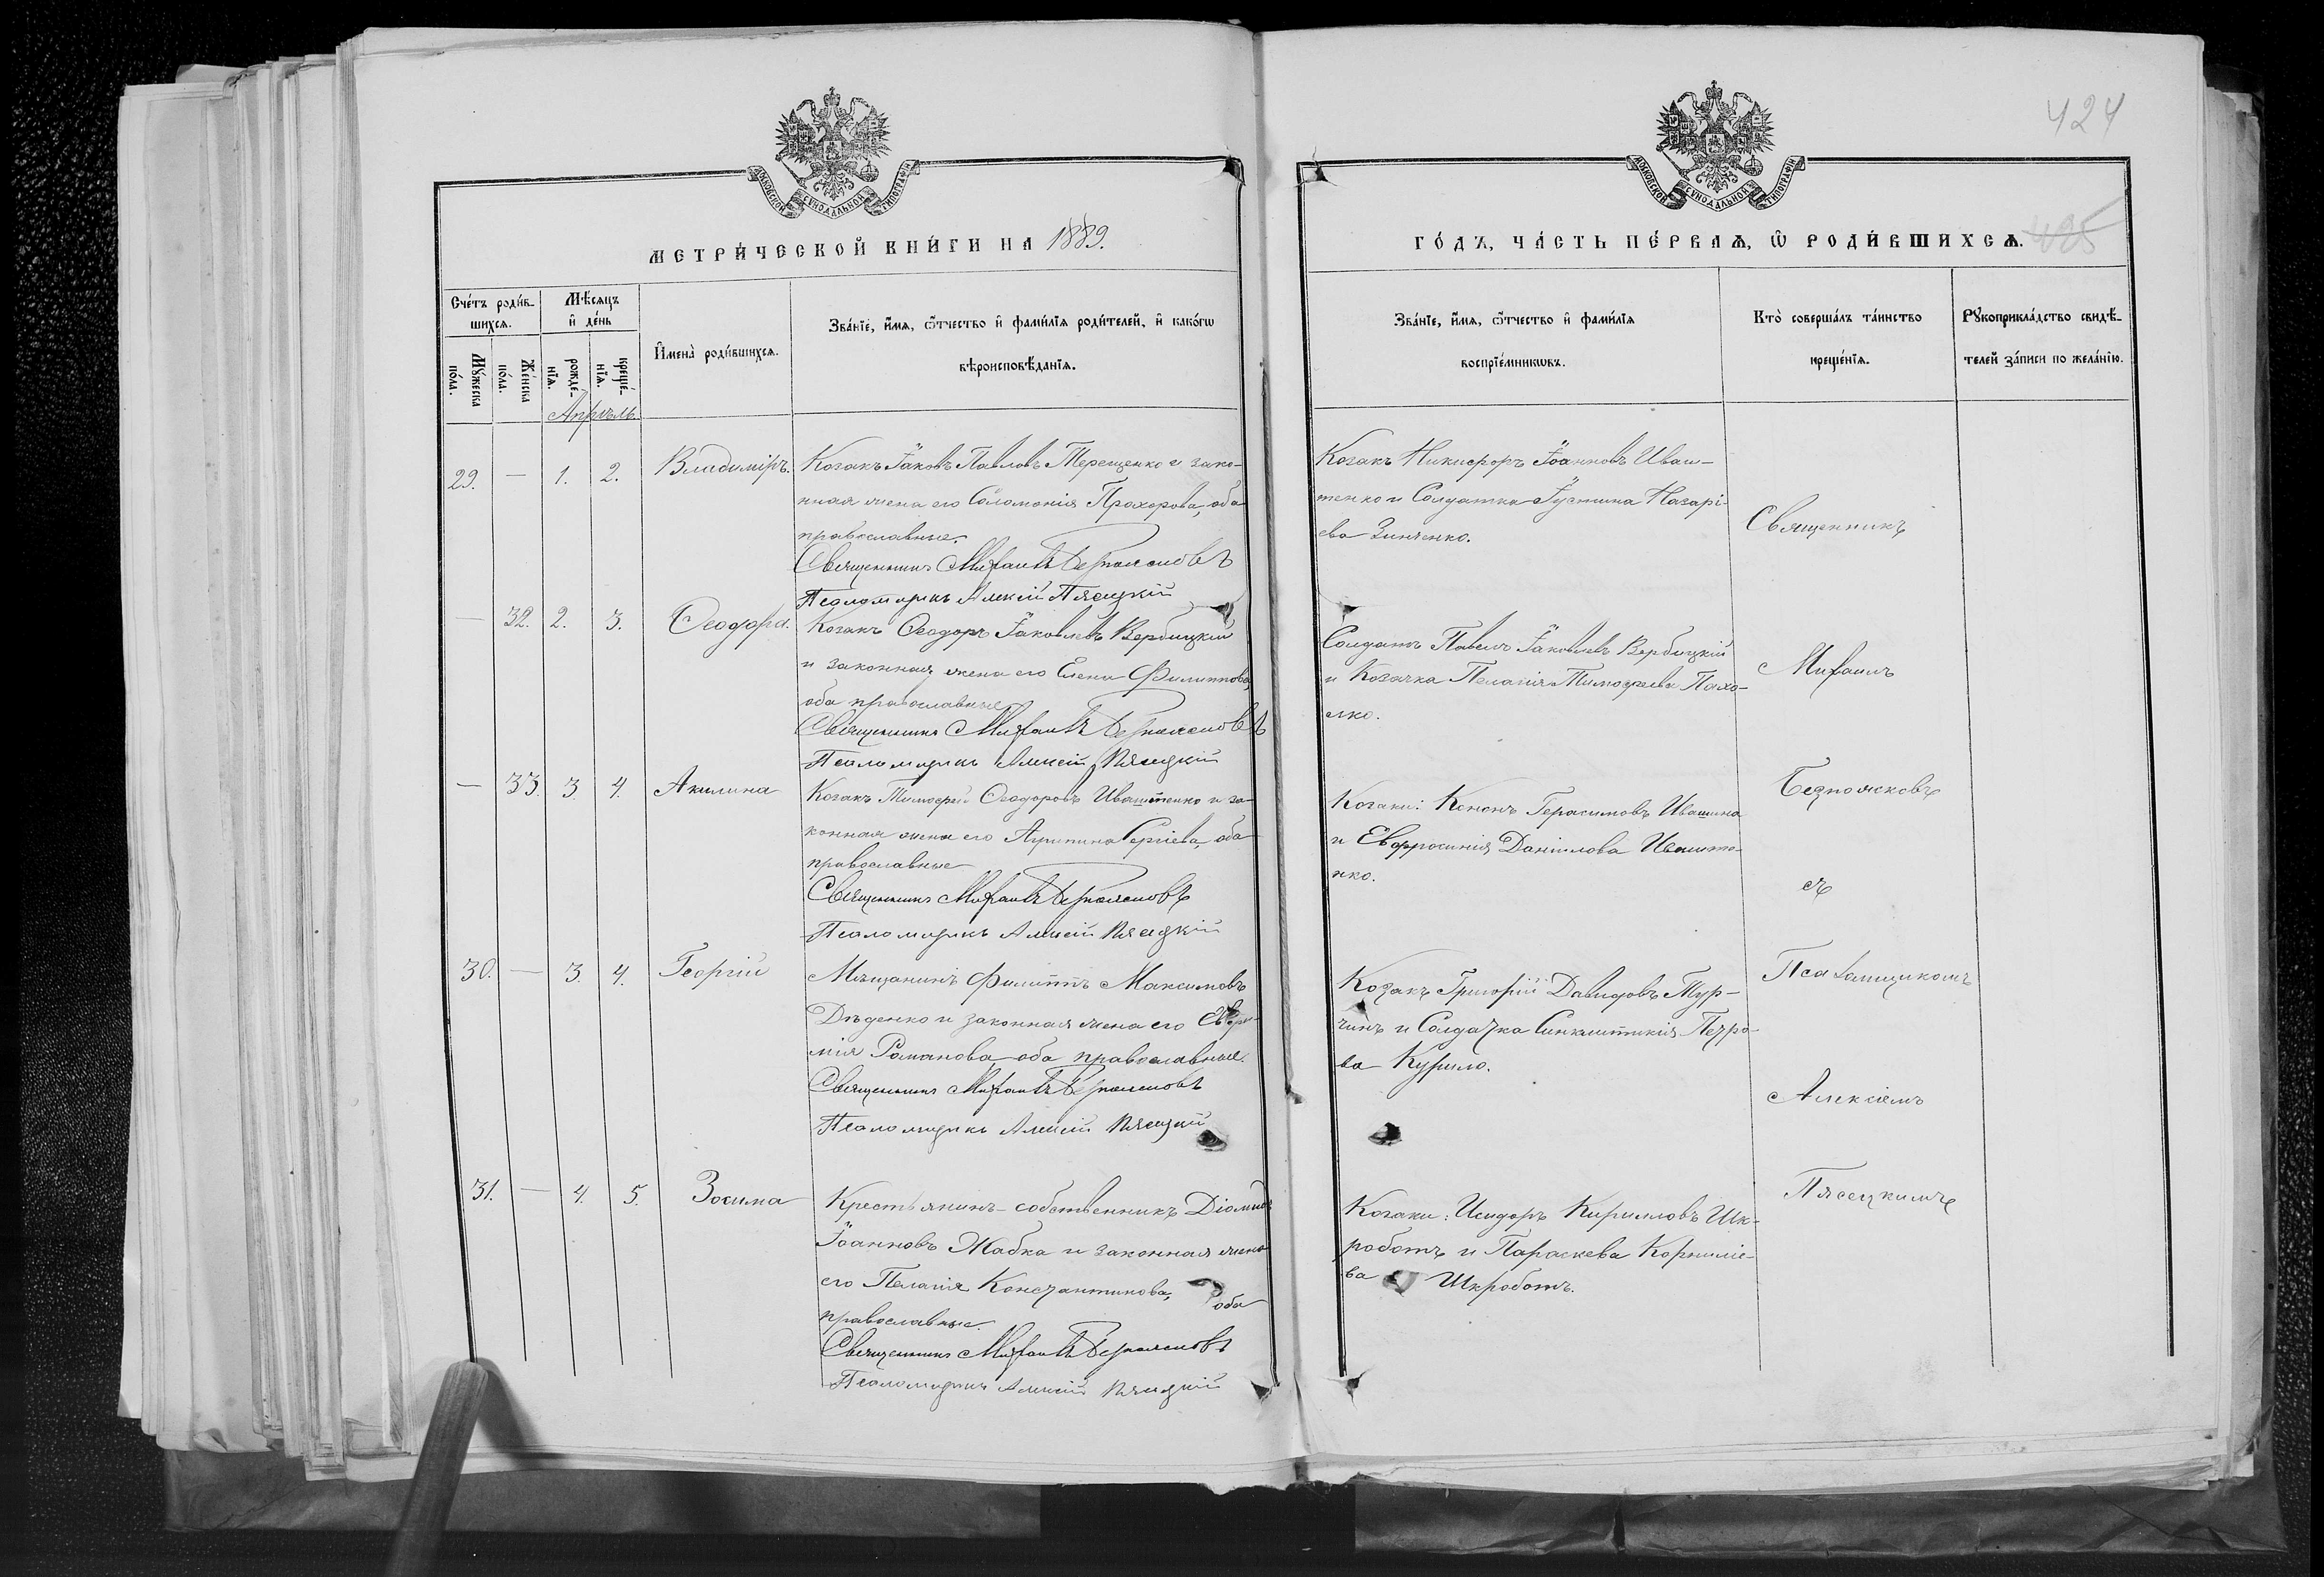 424
МОСКОВСКОЙ СѴНОДАЛЬНОЙ ТИПОГРАФІИ
МОСКОВСКОЙ СѴНОДАЛЬНОЙ ТИПОГРАФІИ
МЕТРИ́ЧЕСКОЙ КНИ́ГИ НА 1889.
ГО́ДЪ, ЧА́СТЬ ПЕ́РВАѦ, Ѽ РОДИ́ВШИХСѦ. 425
Сче́тъ роди́в-
шихсѧ.
Мѣ́сѧцъ
и҆ де́нь
Мꙋ́жеска
по́ла.
Же́нска
по́ла.
рожде́-
нїѧ.
креще́-
нїѧ.
И҆мена̀ роди́вшихсѧ.
Зва́нїе, и҆́мѧ, ѻ҆́тчество и҆ фами́лїѧ роди́телей, и҆ како́гѡ
вѣроисповѣ́данїѧ.
Зва́нїе, и҆́мѧ, ѻ҆́тчество и҆ фами́лїѧ
воспрїе́мникѡвъ.
Кто̀ соверша́лъ та́инство
креще́нїѧ.
Рꙋкоприкла́дство свидѣ́-
телей за́писи по жела́нїю.
Апрѣль
29. — 1. 2. Владиміръ.
Козакъ Іаковъ Павловъ Терещенко и зако-
нная жена его Соломонія Прохорова, оба
православные.
Священникъ Михаилъ Безпоясковъ
Псаломщикъ Алексій Пясецкій
Козакъ Никифоръ Іоанновъ Иваш-
тенко и Солдатка Іустина Назарі-
ева Зинченко.
— 32. 2. 3. Ѳеодора.
Козакъ Ѳеодоръ Іаковлевъ Вербицкій
и законная жена его Елена Филиппова,
оба православные
Священникъ Михаилъ Безпоясковъ
Псаломщикъ Алексій Пясецкій
Солдатъ Павелъ Іаковлевъ Вербицкій
и Козачка Пелагія Тимоѳеева Пахо-
лко.
— 33. 3. 4. Акилина
Козакъ Тимоѳей Ѳеодоровъ Иваштенко и за-
конная жена его Агрипина Сергіева, оба
православные
Священникъ Михаилъ Безпоясковъ
Псаломщикъ Алексій Пясецкій
Козаки: Кононъ Герасимовъ Ивашина
и Евфросинія Даніилова Иваште-
нко.
30. — 3. 4. Георгій
Мѣщанинъ Филиппъ Максимовъ
Дѣденко и законная жена его Евфи-
мія Романова оба православные.
Священникъ Михаилъ Безпоясковъ
Псаломщикъ Алексій Пясецкій
Козакъ Григорій Давидовъ Тур-
чинъ и Солдатка Синклитикія Петро-
ва Курило.
31. — 4. 5. Зосима
Крестьянинъ-собственникъ Діомидъ
Іоанновъ Жабка и законная жена
его Пелагія Константинова, оба
православные.
Священникъ Михаилъ Безпоясковъ
Псаломщикъ Алексій Пясецкій
Козаки: Исидоръ Кирилловъ Шк-
роботъ и Параскева Корниліе-
ва Шкроботъ.
Священникъ
Михаилъ
Безпоясковъ
съ
Псаломщикомъ
Алексіемъ
Пясецкимъ